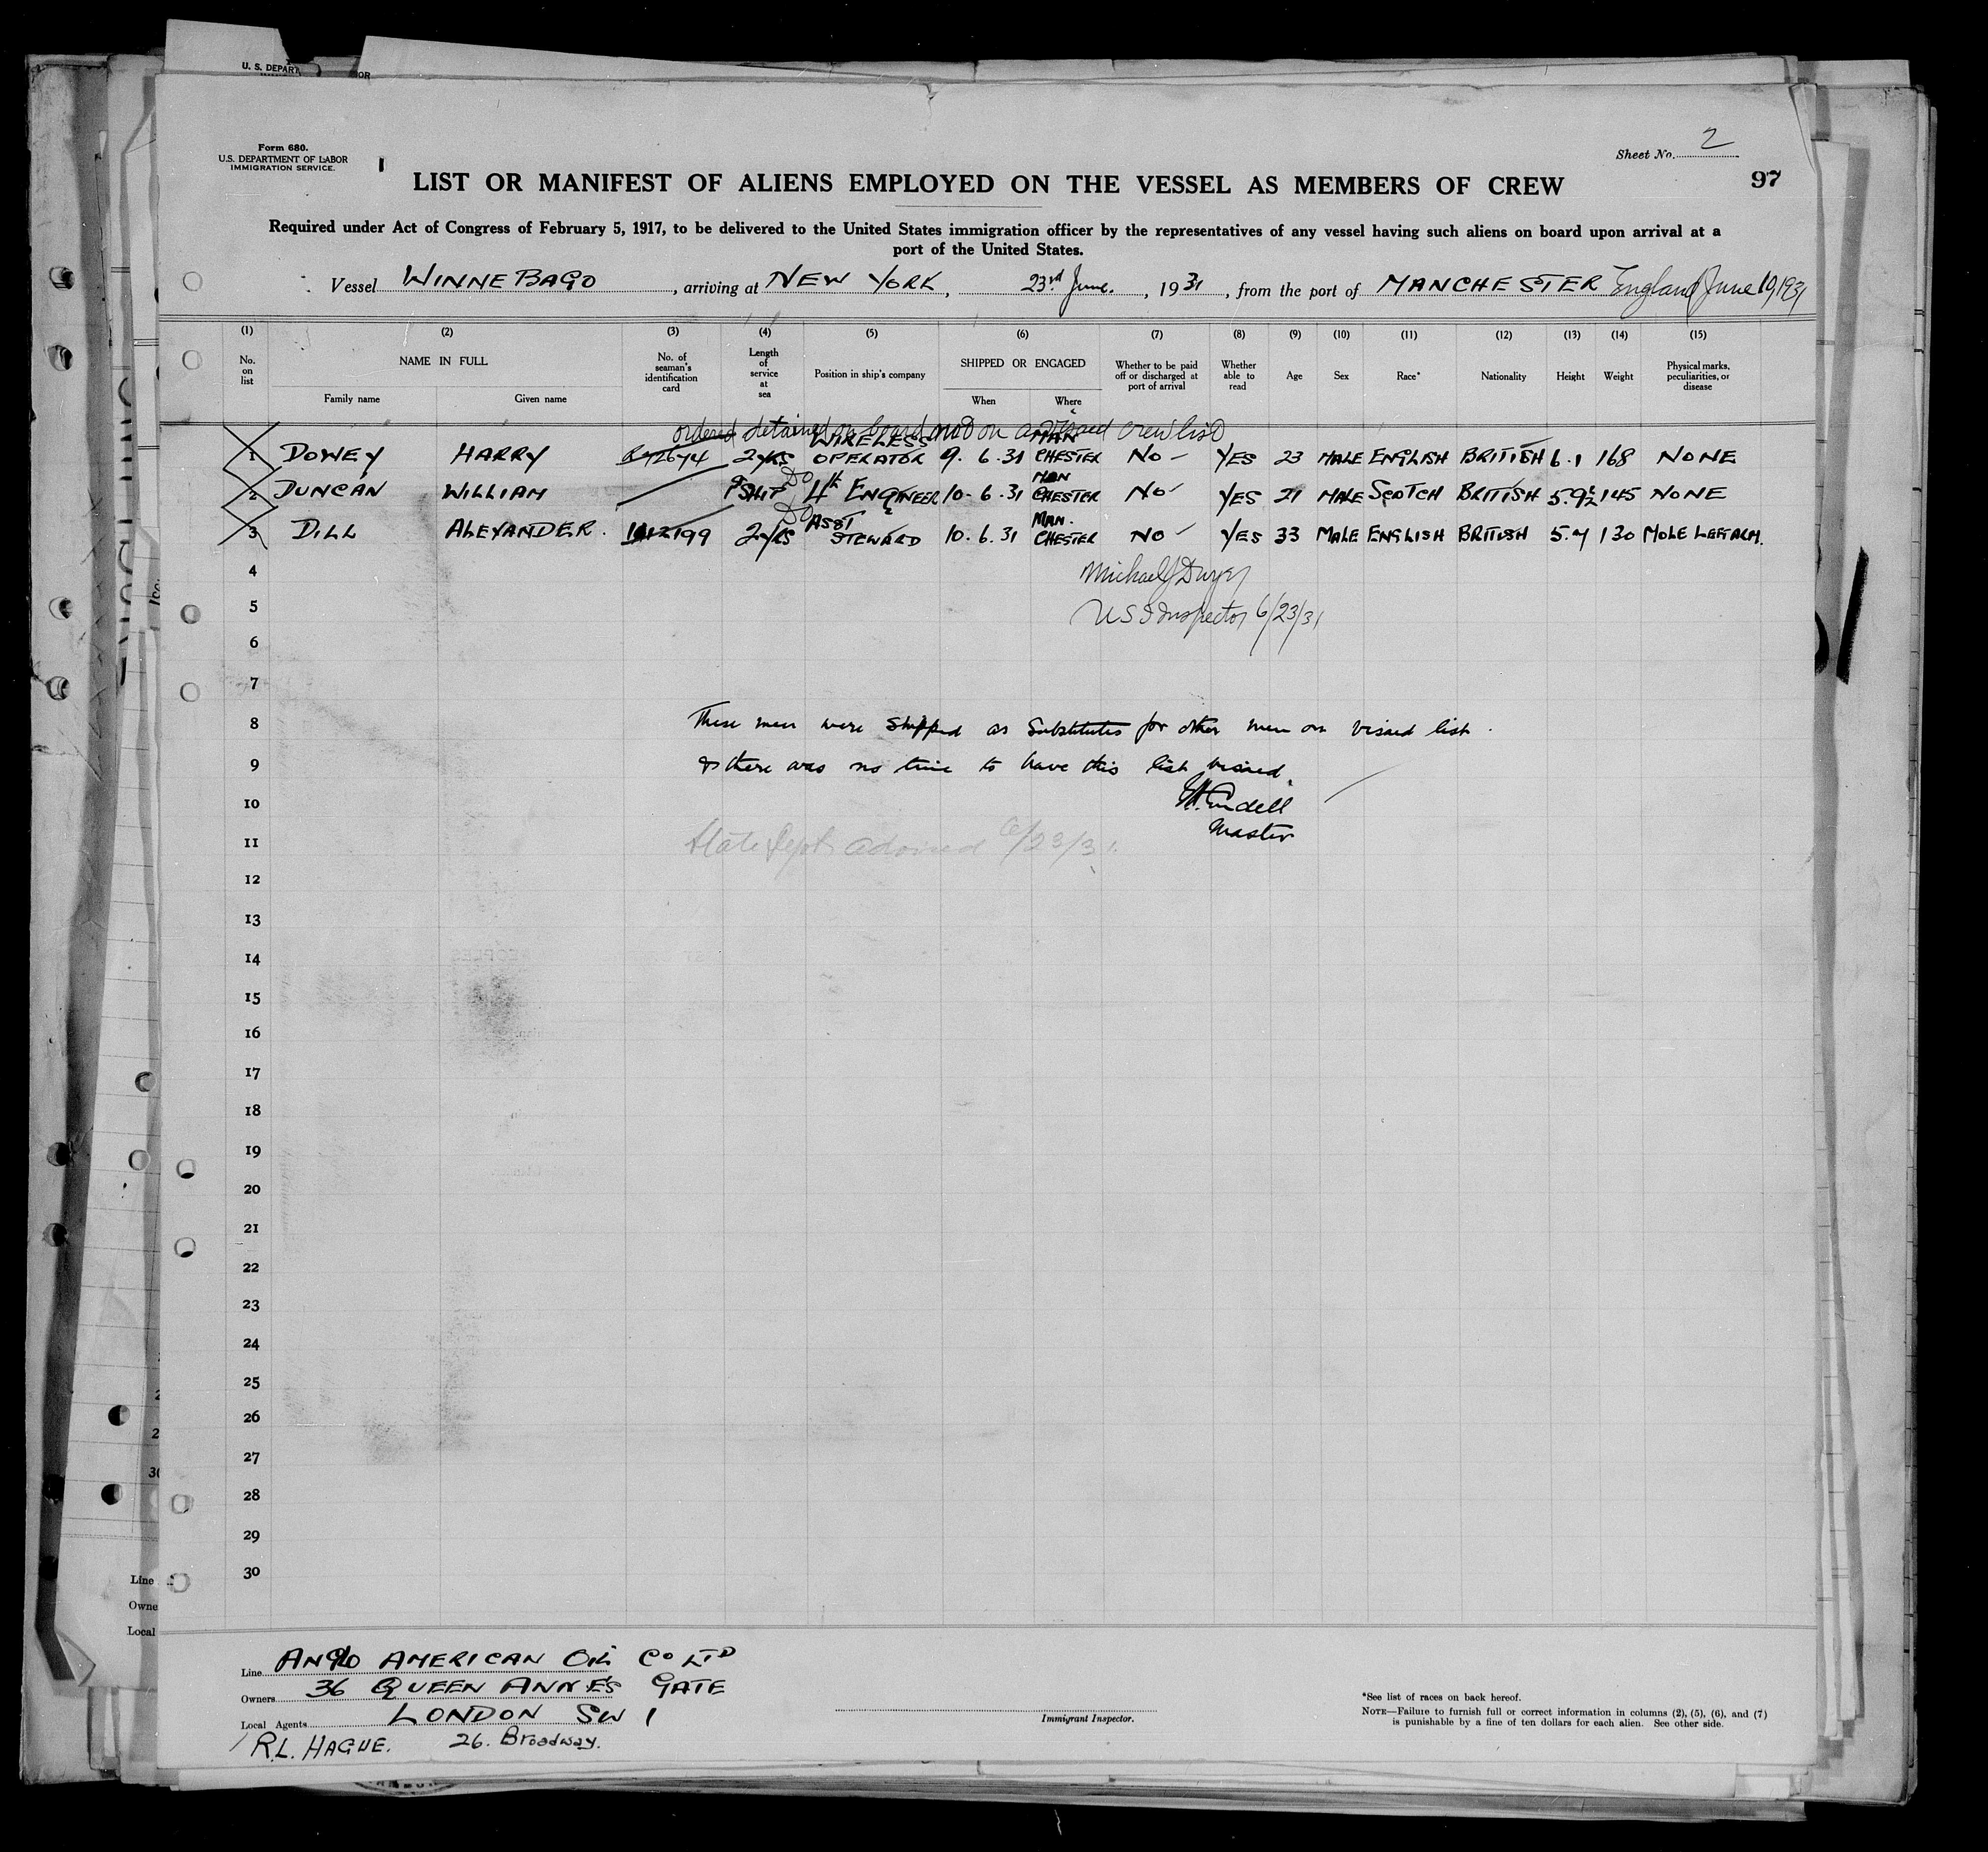 U. S. DEPART
OR
Form 680.
U.S. DEPARTMENT OF LABOR
IMMIGRATION SERVICE.
Sheet No. 2
LIST OR MANIFEST OF ALIENS EMPLOYED ON THE VESSEL AS MEMBERS OF CREW
97
Required under Act of Congress of February 5, 1917, to be delivered to the United States immigration officer by the representatives of any vessel having such aliens on board upon arrival at a
port of the United States.
Vessel WINNEBAGO, arriving at NEW YORK, 23rd June., 1931, from the port of MANCHESTER England June 10, 1931
(1) (2) (3) (4) (5) (6) (7) (8) (9) (10) (11) (12) (13) (14) (15)
No. on list NAME IN FULL No. of seaman's identification card Length of service at sea Position in ship's company SHIPPED OR ENGAGED Whether to be paid off or discharged at port of arrival Whether able to read Age Sex Race* Nationality Height Weight Physical marks, peculiarities, or disease
Family name Given name When Where
ordered detained on board not on a visaed crew list
1 DOWEY HARRY 2 YRS WIRELESS OPERATOR 9.6.31 MANCHESTER NO YES 23 MALE ENGLISH BRITISH 6.1 168 NONE
2 DUNCAN WILLIAM Do 4th ENGINEER 10.6.31 MANCHESTER NO YES 21 MALE SCOTCH BRITISH 5.9½ 145 NONE
3 DILL ALEXANDER. 2 YRS Do ASST STEWARD 10.6.31 MAN.CHESTER NO YES 33 MALE ENGLISH BRITISH 5.4 130 MOLE LEFT ARM.
4 Michael J Dwyer
5 US I Inspector 6/23/31
6
7
8 These men were shipped as substitutes for other men on visaed list.
9 & there was no time to have this list visaed.
10
Master
11 State Dept advised 6/23/31.
12
13
14
15
16
17
18
19
20
21
22
23
24
25
26
27
28
29
30
Line
Owne
Local
Line ANGLO AMERICAN OIL CO LTD
Owners 36 QUEEN ANNE'S GATE
Local Agents LONDON SW 1
R.L. HAGUE. 26. Broadway.
Immigrant Inspector.
*See list of races on back hereof.
NOTE—Failure to furnish full or correct information in columns (2), (5), (6), and (7)
is punishable by a fine of ten dollars for each alien. See other side.